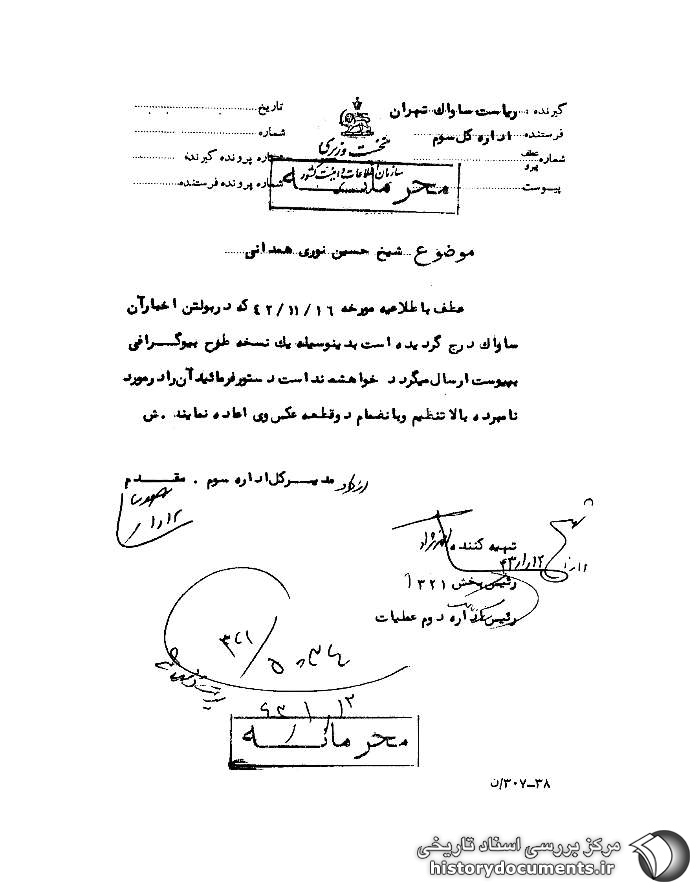 گیرنده : ریاست ساواک تهران
فرستنده اداره کل سوم
شماره عطف پیرو
پیوست
نخست وزیری
سازمان اطلاعات و امنیت کشور
محرمانه
تاریخ
شماره
شماره پرونده گیرنده
شماره پرونده فرستنده
موضوع شیخ حسین نوری همدانی
عطف باطلاعیه مورخه ٤٢/١١/١٦ که در بولتن اخبار آن
ساواک درج گردیده است بدینوسیله یک نسخه طرح بیوگرافی
بپیوست ارسال میگردد خواهشمند است دستور فرمائید آن را در مورد
نامبرده بالا تنظیم و بانضمام دو قطعه عکس وی اعاده نمایند . ش
مدیر کل اداره سوم . مقدم
تهیه کننده
رئیس بخش ٣٢١
رئیس اداره دوم عملیات
محرمانه
٣٠٧-٣٨/ن
مرکز بررسی اسناد تاریخی
historydocuments.ir